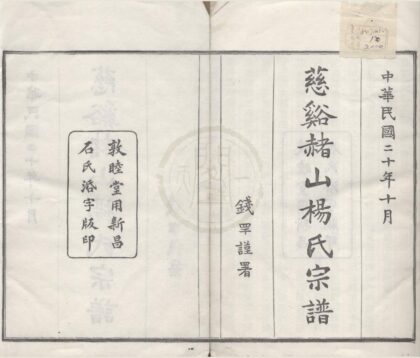 中華民國二十年十月
慈谿赭山楊氏宗譜
錢罕謹署
敦睦堂用新昌
石氏活字版印